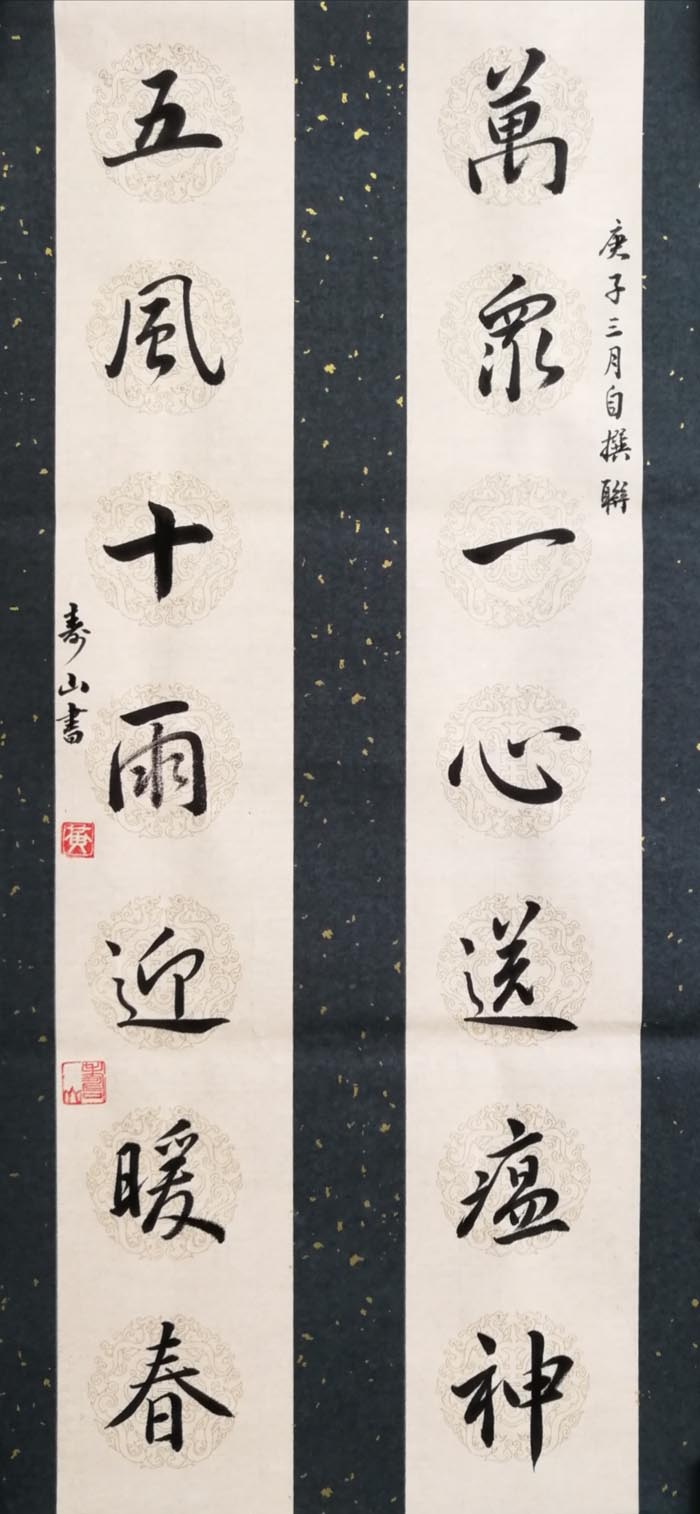 庚子三月自撰聯
萬眾一心送瘟神
五風十雨迎暖春
寿山書
黃